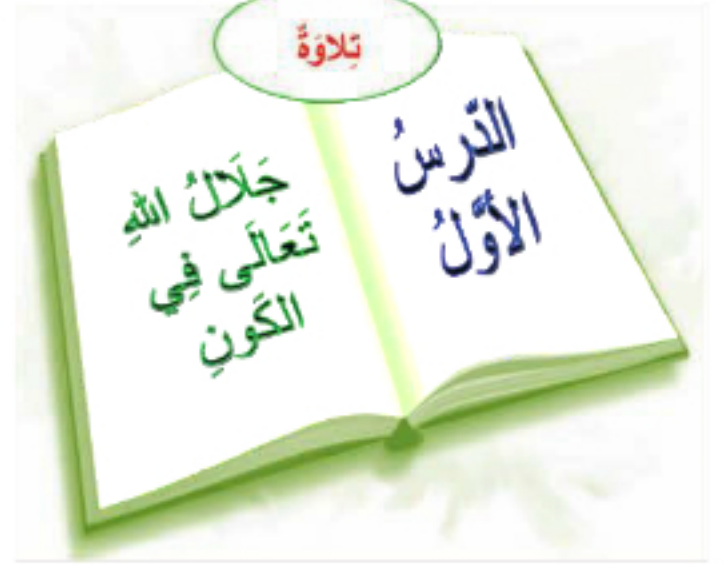 تِلاوَةٌ
الدّرسُ
الأَوَّلُ
جَلَالُ اللهِ
تَعَالَى فِي
الكَونِ